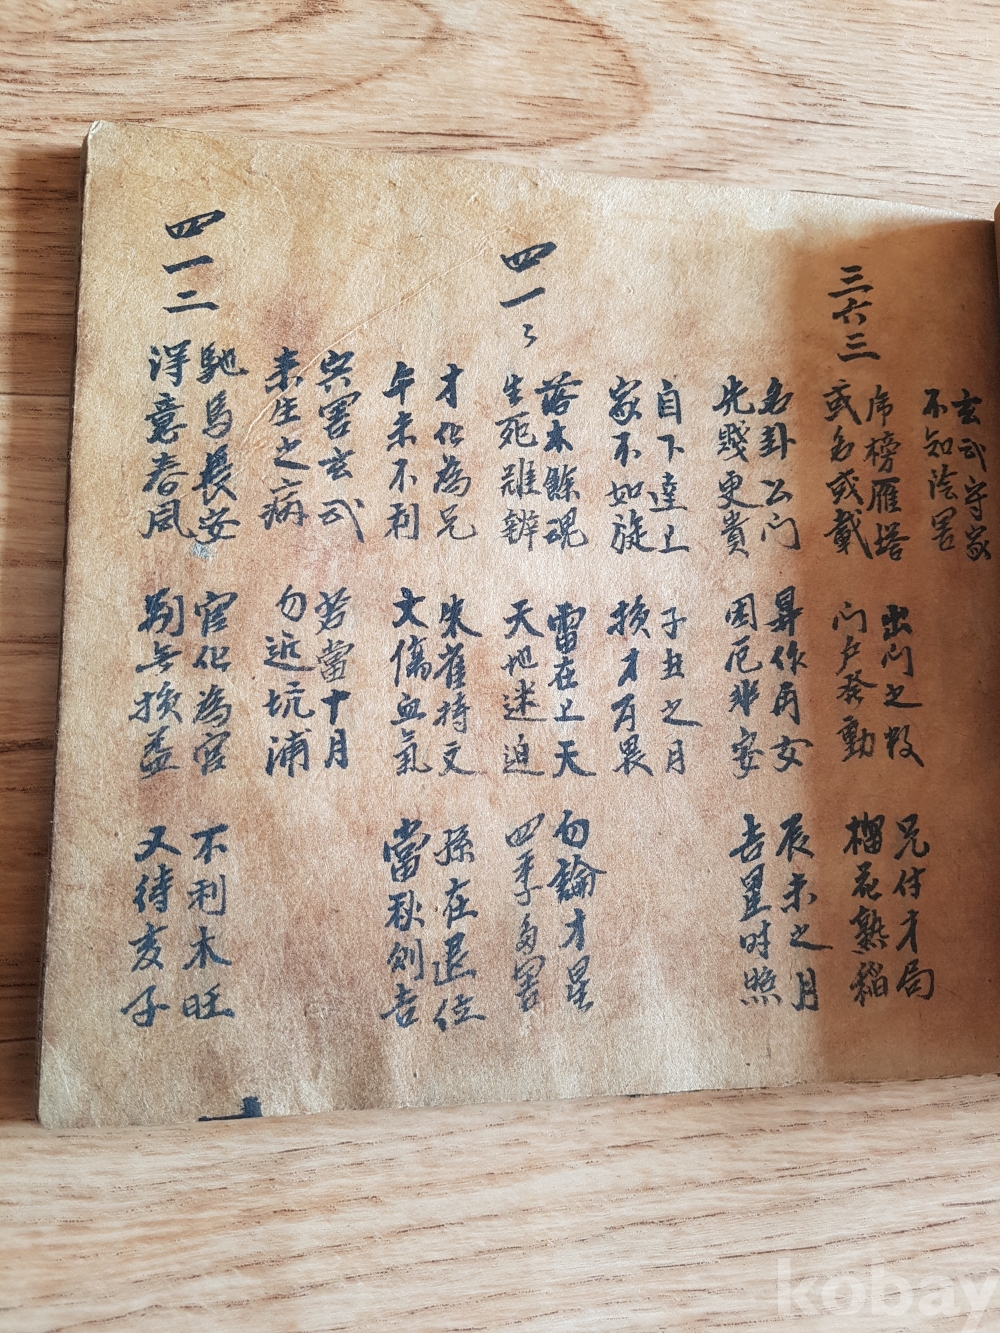 玄武守家
不知陰害
三六三
席榜雁塔
或名或載
出門之
門戶發動
兄付才局
榴花熟稻
名卦公门
先賤更貴
昇作再女
困厄非安
辰未之月
吉星时照
自下達上
家不如旋
子丑之月
損才可畏
四一ミ
落木餘魂
生死難辨
雷在上天
天地迷迫
勿論才星
四季多害
才化為兄
午未不利
朱雀持文
文傷血氣
孫在退位
當秋則吉
灾害玄武
未生之病
若當十月
勿近坑浦
四一二
馳馬長安
得意春風
官化為官
別無損益
不利木旺
又待亥子
kobay